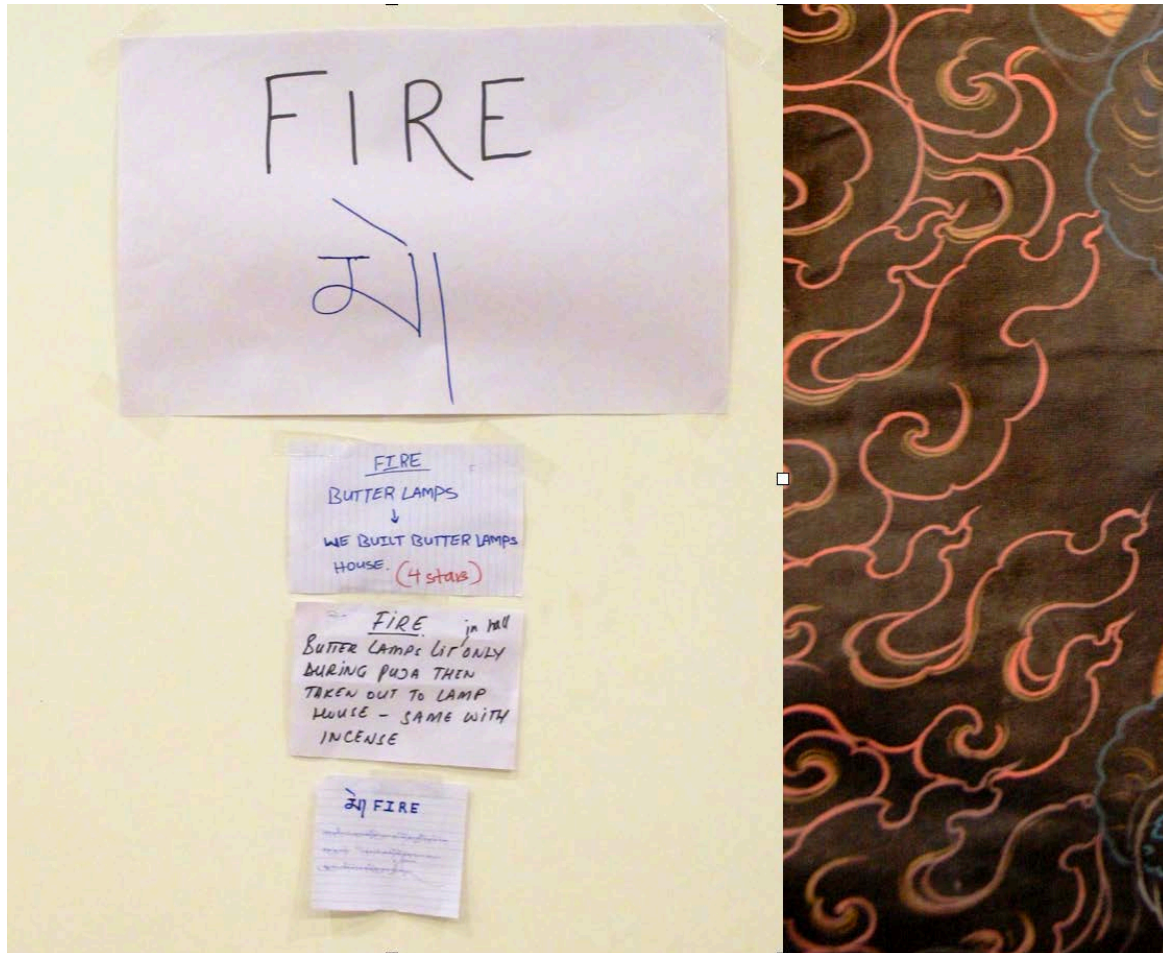 FIRE
མེ།
FIRE
BUTTER LAMPS
↓
WE BUILT BUTTER LAMPS
HOUSE. (4 stars)
FIRE in hall
BUTTER LAMPS LIT ONLY
DURING PUJA THEN
TAKEN OUT TO LAMP
HOUSE – SAME WITH
INCENSE
མེ། FIRE